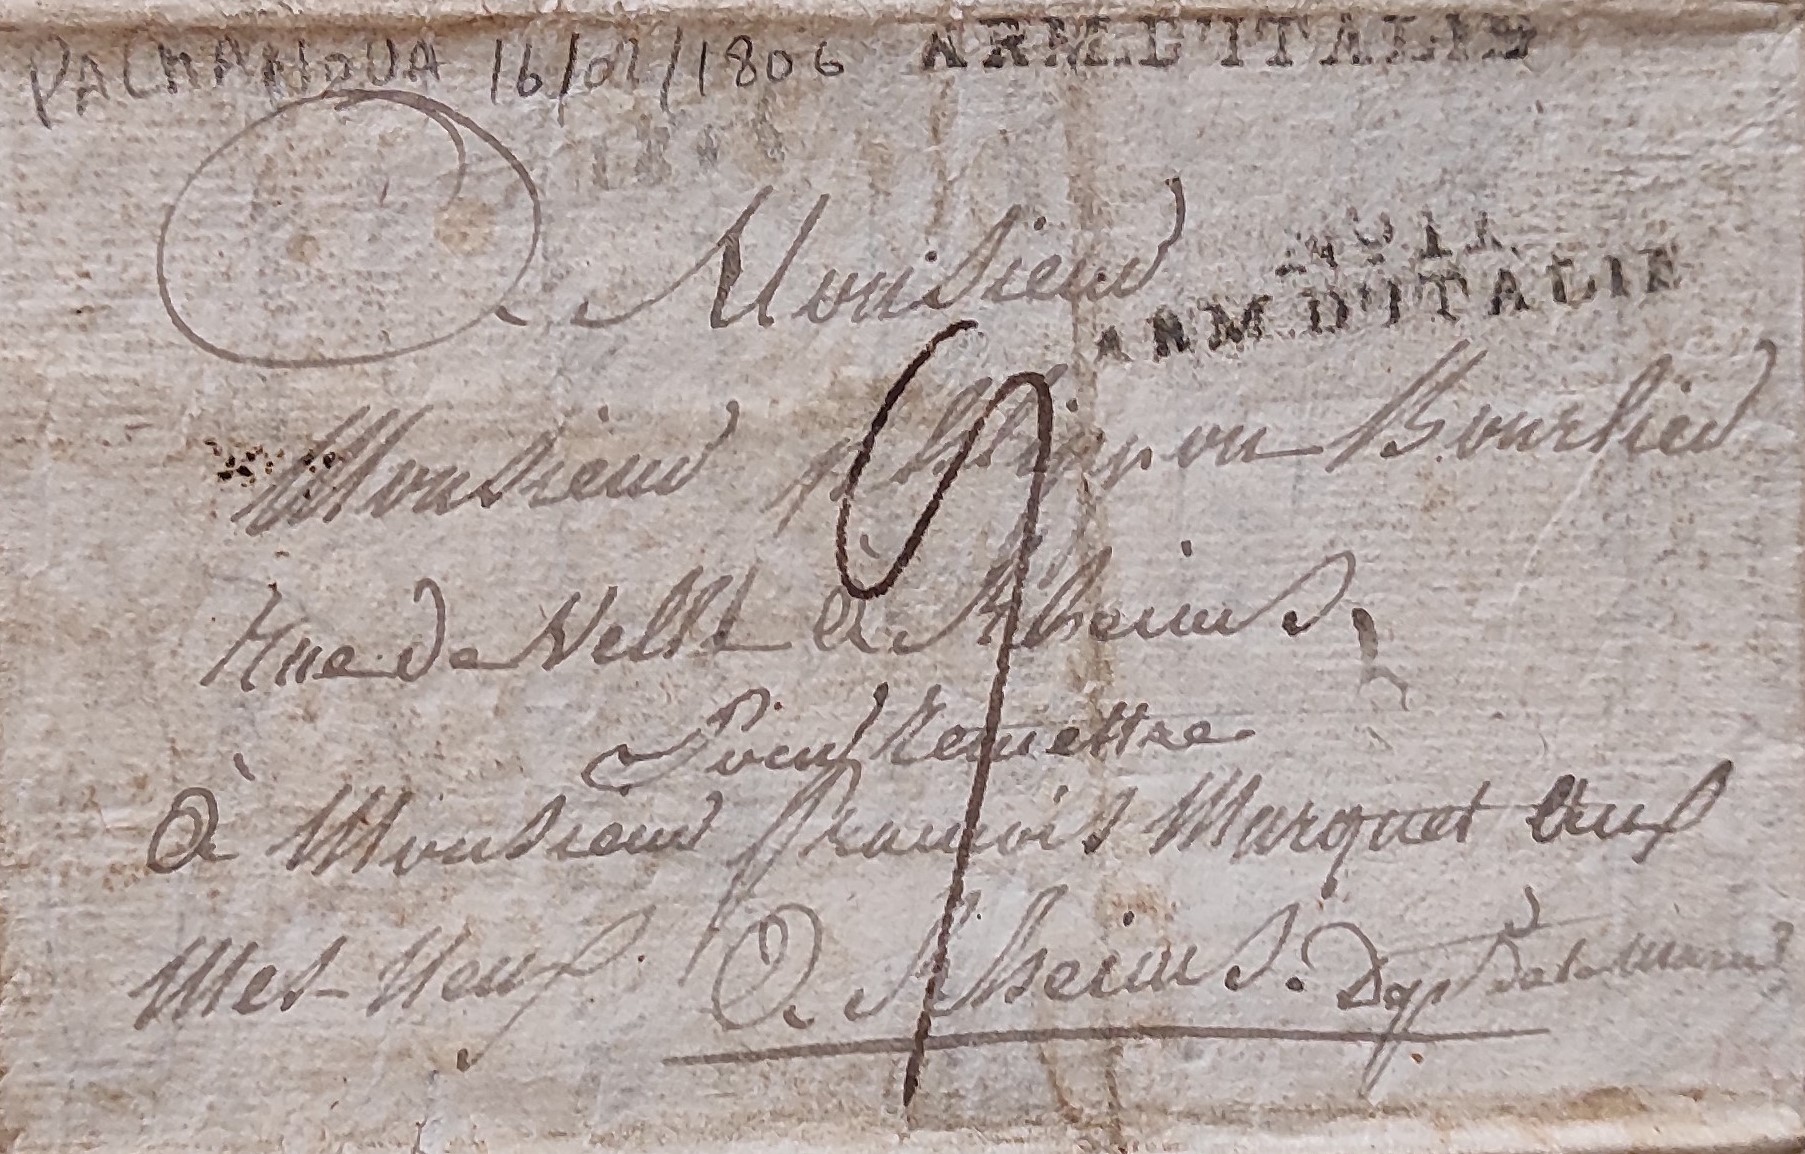 PALMANOVA 16/01/1806 ARM. D'ITALIE
A Monsieur
ARM. D'ITALIE
Monsieur Phlippon Bourlied
Rue de Velle à Rheims
Pour Remettre
à Monsieur françois Marquet aux
Mes Neuf. à Rheims. Dept de la Marne